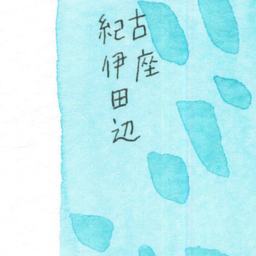 古座
紀伊田辺